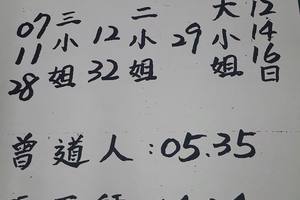 12 14 16日
大小姐
29
二小姐
12 32
三小姐
07 11 28
曾道人:05.35